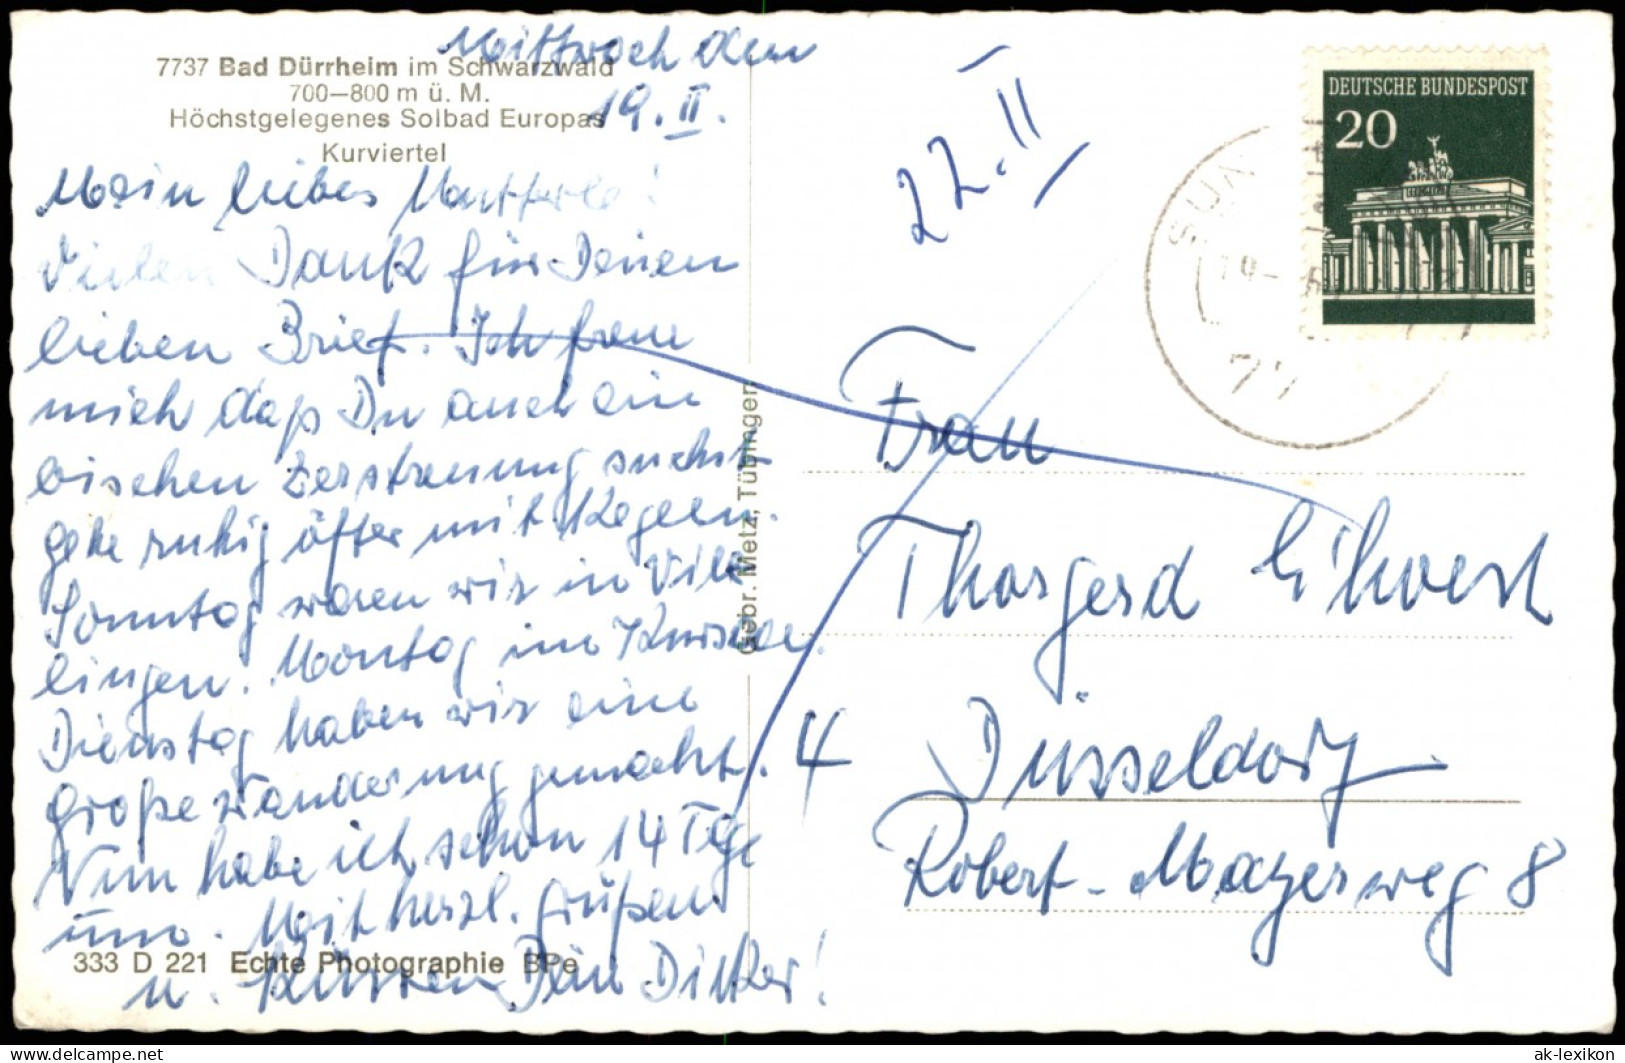 7737 Bad Dürrheim im Schwarzwald
700—800 m ü. M.
Höchstgelegenes Solbad Europas
Kurviertel
Mittwoch den
19. II.
Mein liebes Mutterle!
Vielen Dank für Deinen
lieben Brief. Ich freue
mich daß Du auch ein
bischen Zerstreuung suchst
gehe ruhig öfter mit Kegeln.
Sonntag waren wir in Vil
lingen. Montag im Kursaal.
Dienstag haben wir eine
große Wanderung gemacht.
Nun habe ich schon 14 Tage
um. Mit herzl. Grüßen
u. Küssen Dein Dieter!
333 D 221 Echte Photographie BPe
Gebr. Metz, Tübingen
22. II
DEUTSCHE BUNDESPOST
20
77
Frau
Thorgerd
4 Düsseldorf
Robert-Mayerweg 8
delcampe.net
ak-lexikon